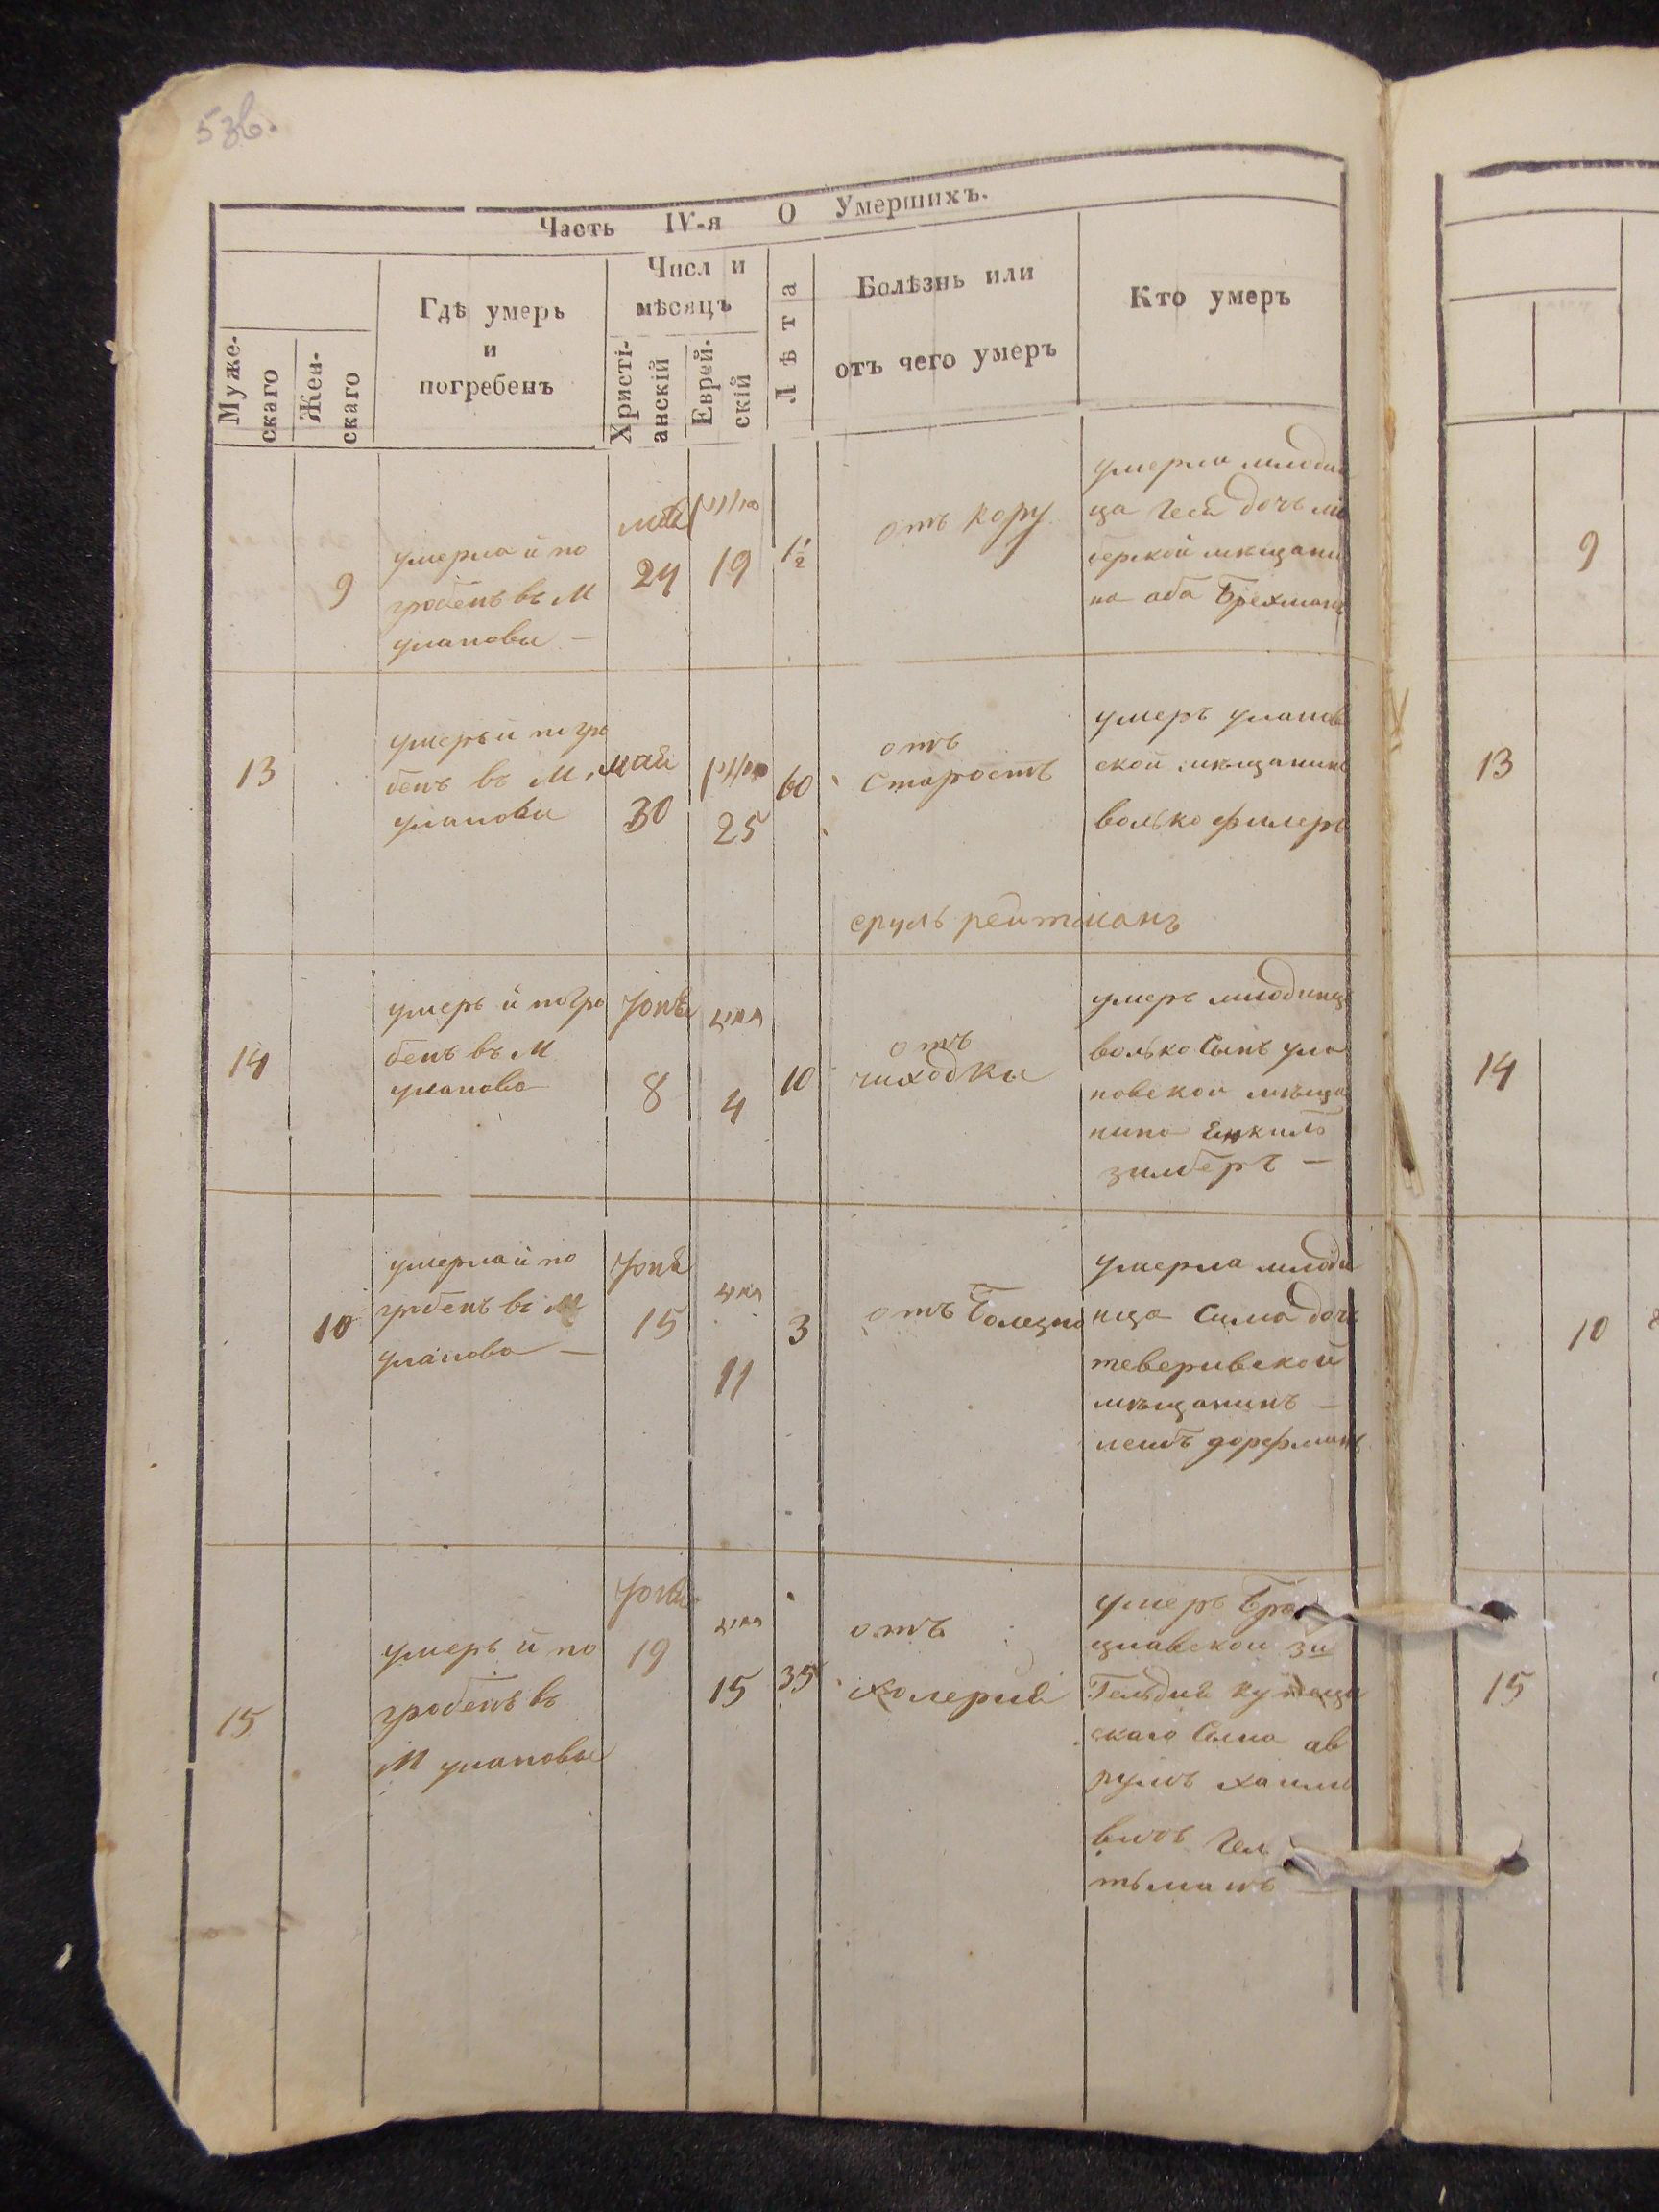 5 зв.
Часть IV-я О Умершихъ.
Муже-
скаго
Жен-
скаго
Гдѣ умеръ
и
погребенъ
Числ и
мѣсяцъ
Христі-
анскій
Еврей-
скій
Лѣта
Болѣзнь или
отъ чего умеръ
Кто умеръ
9
умерла й по
гробенъ въ М
улановы —
май
24
סיון
19
1½
отъ кору
умерла млоден
ца дочь
мещани
на аба Брехман
9
13
умеръ и погре
бенъ въ М
уланови
май
30
סיון
25
60
отъ
Старость
умеръ уланов
ской мещанинъ
волько филеръ
13
еруль рейтманъ
14
умеръ й погро
бенъ въ М
уланово
Юнъ
8
תמוז
4
10
отъ
чиходки
умеръ млодинец
волько Сынъ ула
новской меща
нина Енкиль
зимберъ —
14
10
умерла й по
гробенъ въ М
уланова —
Юнь
15
תמוז
11
3
отъ Болезно
умерла млоди
нца Сима доч
теверивской
мещанинъ —
лейбъ дорфман
10
15
умеръ й по
гробенъ въ
М уланова
Юнь
19
תמוז
15
35
отъ
холерий
умеръ Бра
цлавской 3й
Гельдий купеци
скаго Сына ав
румъ хаимо
вичъ Гел
тьманъ —
15